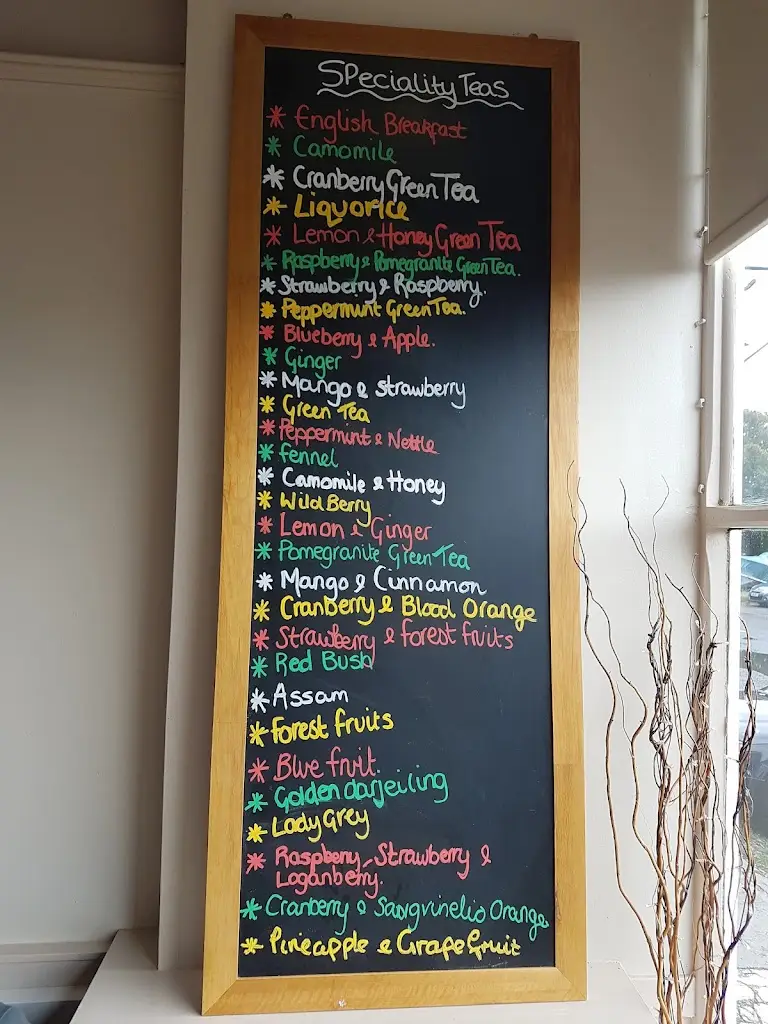 SPeciality Teas
* English Breakfast
* Camomile
* Cranberry Green Tea
* Liquorice
* Lemon & Honey Green Tea
* Raspberry & Pomegranite Green Tea.
* Strawberry & Raspberry.
* Peppermint Green Tea.
* Blueberry & Apple.
* Ginger
* Mango & Strawberry
* Green Tea
* Peppermint & Nettle
* Fennel
* Camomile & Honey
* Wild Berry
* Lemon & Ginger
* Pomegranite Green Tea
* Mango & Cinnamon
* Cranberry & Blood Orange
* Strawberry & forest fruits
* Red Bush
* Assam
* Forest fruits
* Blue fruit.
* Golden darjeiling
* Lady Grey
* Raspberry, Strawberry &
Loganberry.
* Cranberry & Sangvinelio Orange
* Pineapple & GrapeFruit